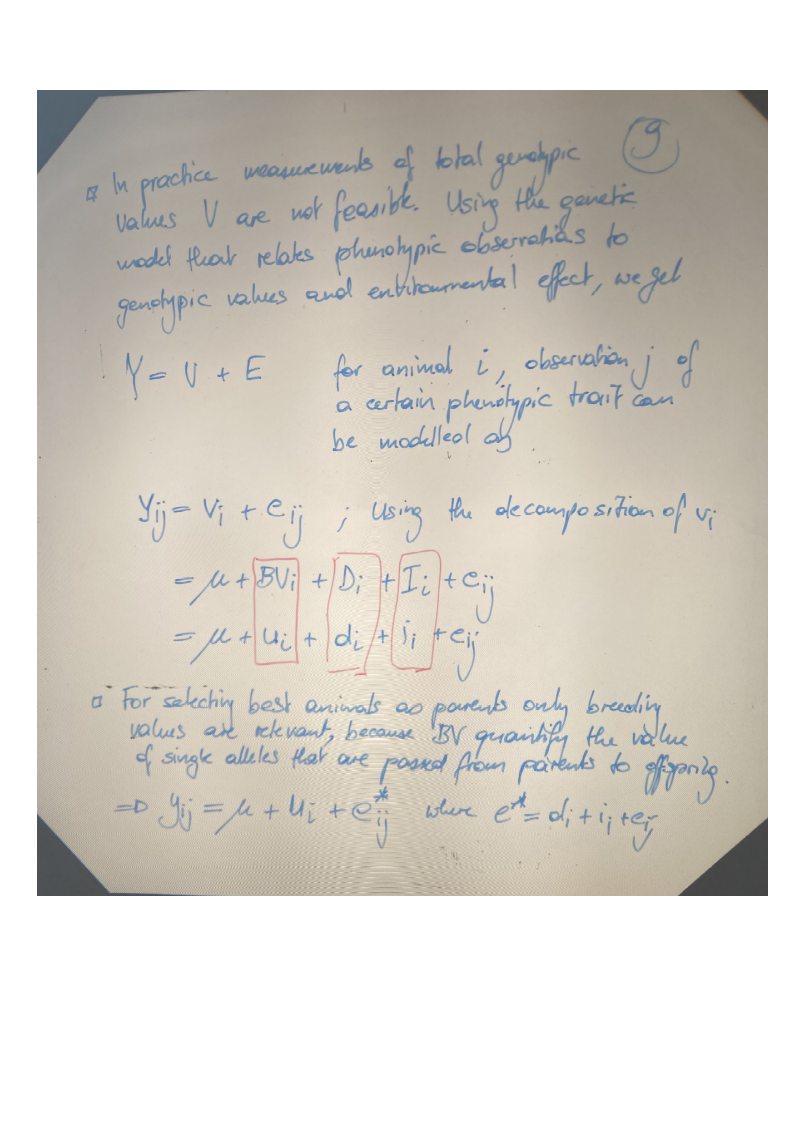 9
In practice measurements of total genotypic
values V are not feasible. Using the genetic
model that relates phenotypic observations to
genotypic values and environmental effect, we get
Y = V + E for animal i, observation j of
a certain phenotypic trait can
be modelled as
yij = vi + eij ; using the decomposition of vi
= μ + BVi + Di + Ii + eij
= μ + ui + di + ii + eij
For selecting best animals as parents only breeding
values are relevant, because BV quantify the value
of single alleles that are passed from parents to offspring.
=> yij = μ + ui + e*ij where e* = di + ii + eij